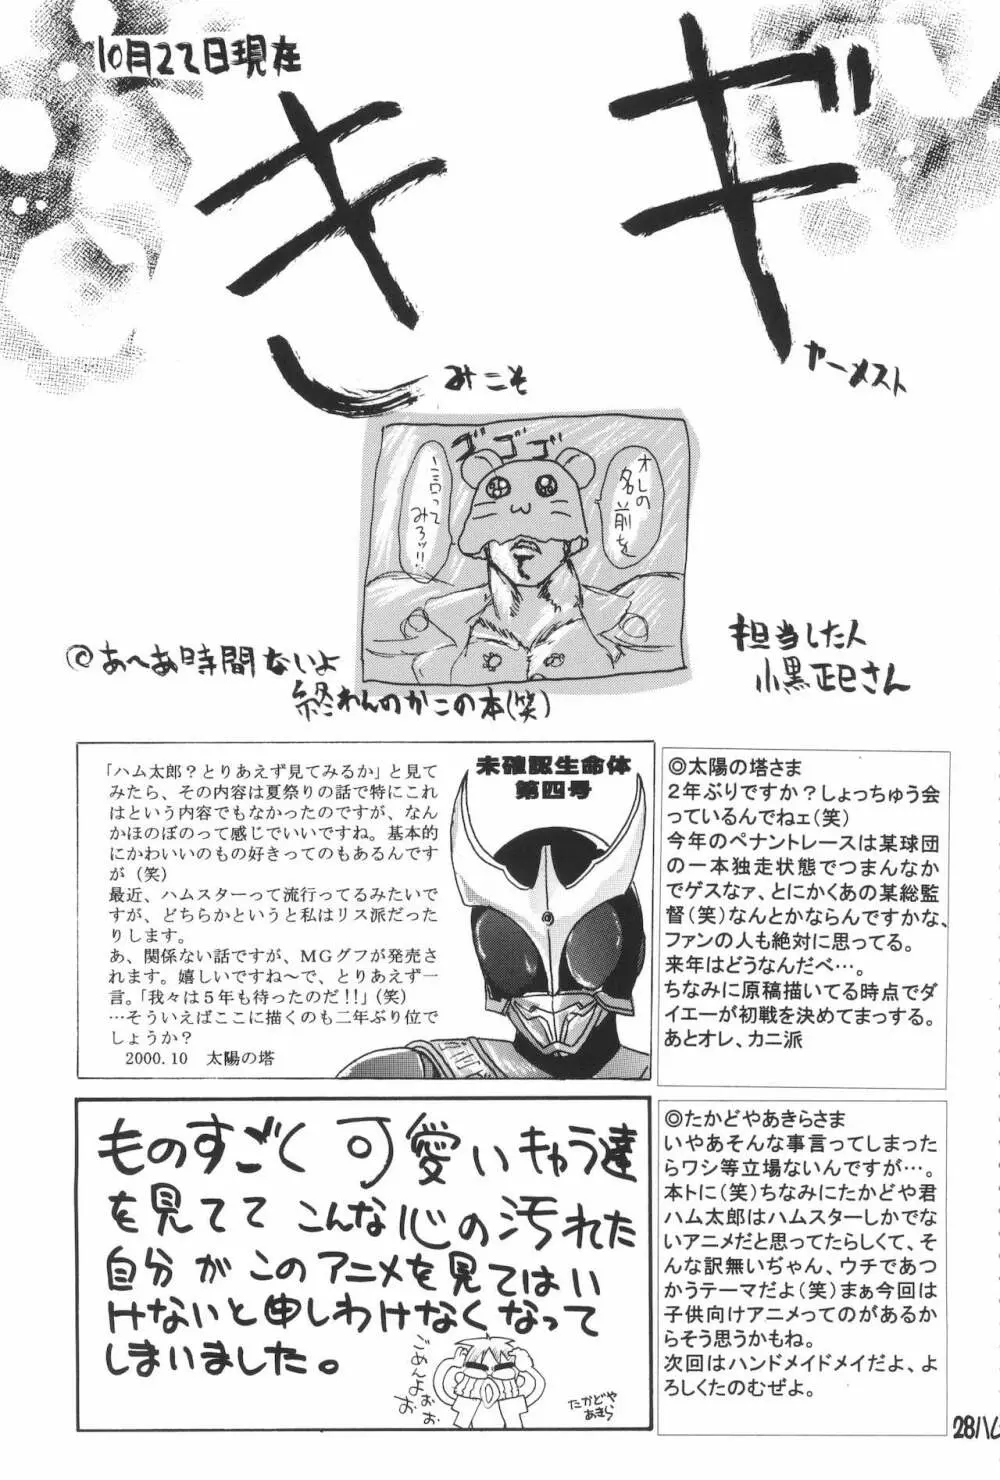 10月22日現在
ギ
き
ャーメスト
みこそ
ゴゴゴゴ
オレの
名前を
言って
みろッ!!
担当した人
小黒正巳さん
◎あ〜あ時間ないよ
終わんのかこの本(笑)
「ハム太郎？とりあえず見てみるか」と見て
みたら、その内容は夏祭りの話で特にこれ
はという内容でもなかったのですが、なん
かほのぼのって感じでいいですね。基本的
にかわいいのもの好きってのもあるんです
が（笑）
最近、ハムスターって流行ってるみたいで
すが、どちらかというと私はリス派だった
りします。
あ、関係ない話ですが、ＭＧグフが発売さ
れます。嬉しいですね〜で、とりあえず一
言。「我々は５年も待ったのだ!!」（笑）
…そういえばここに描くのも二年ぶり位で
しょうか？
2000.10　太陽の塔
未確認生命体
第四号
◎太陽の塔さま
２年ぶりですか？しょっちゅう会
っているんでねェ（笑）
今年のペナントレースは某球団
の一本独走状態でつまんなか
でゲスなァ、とにかくあの某総監
督（笑）なんとかならんですかな、
ファンの人も絶対に思ってる。
来年はどうなんだべ…。
ちなみに原稿描いてる時点でダ
イエーが初戦を決めてまっする。
あとオレ、カニ派
ものすごく可愛いキャラ達
を見てて こんな心の汚れた
自分が このアニメを見てはい
けないと申しわけなくなって
しまいました。
ごめんよぉぉぉ
たかどや
あきら
◎たかどやあきらさま
いやあそんな事言ってしまった
らワシ等立場ないんですが…。
本トに（笑）ちなみにたかどや君
ハム太郎はハムスターしかでな
いアニメだと思ってたらしくて、そ
んな訳無いぢゃん、ウチであつ
かうテーマだよ（笑）まぁ今回は
子供向けアニメってのがあるか
らそう思うかもね。
次回はハンドメイドメイだよ、よ
ろしくたのむぜよ。
28ハム